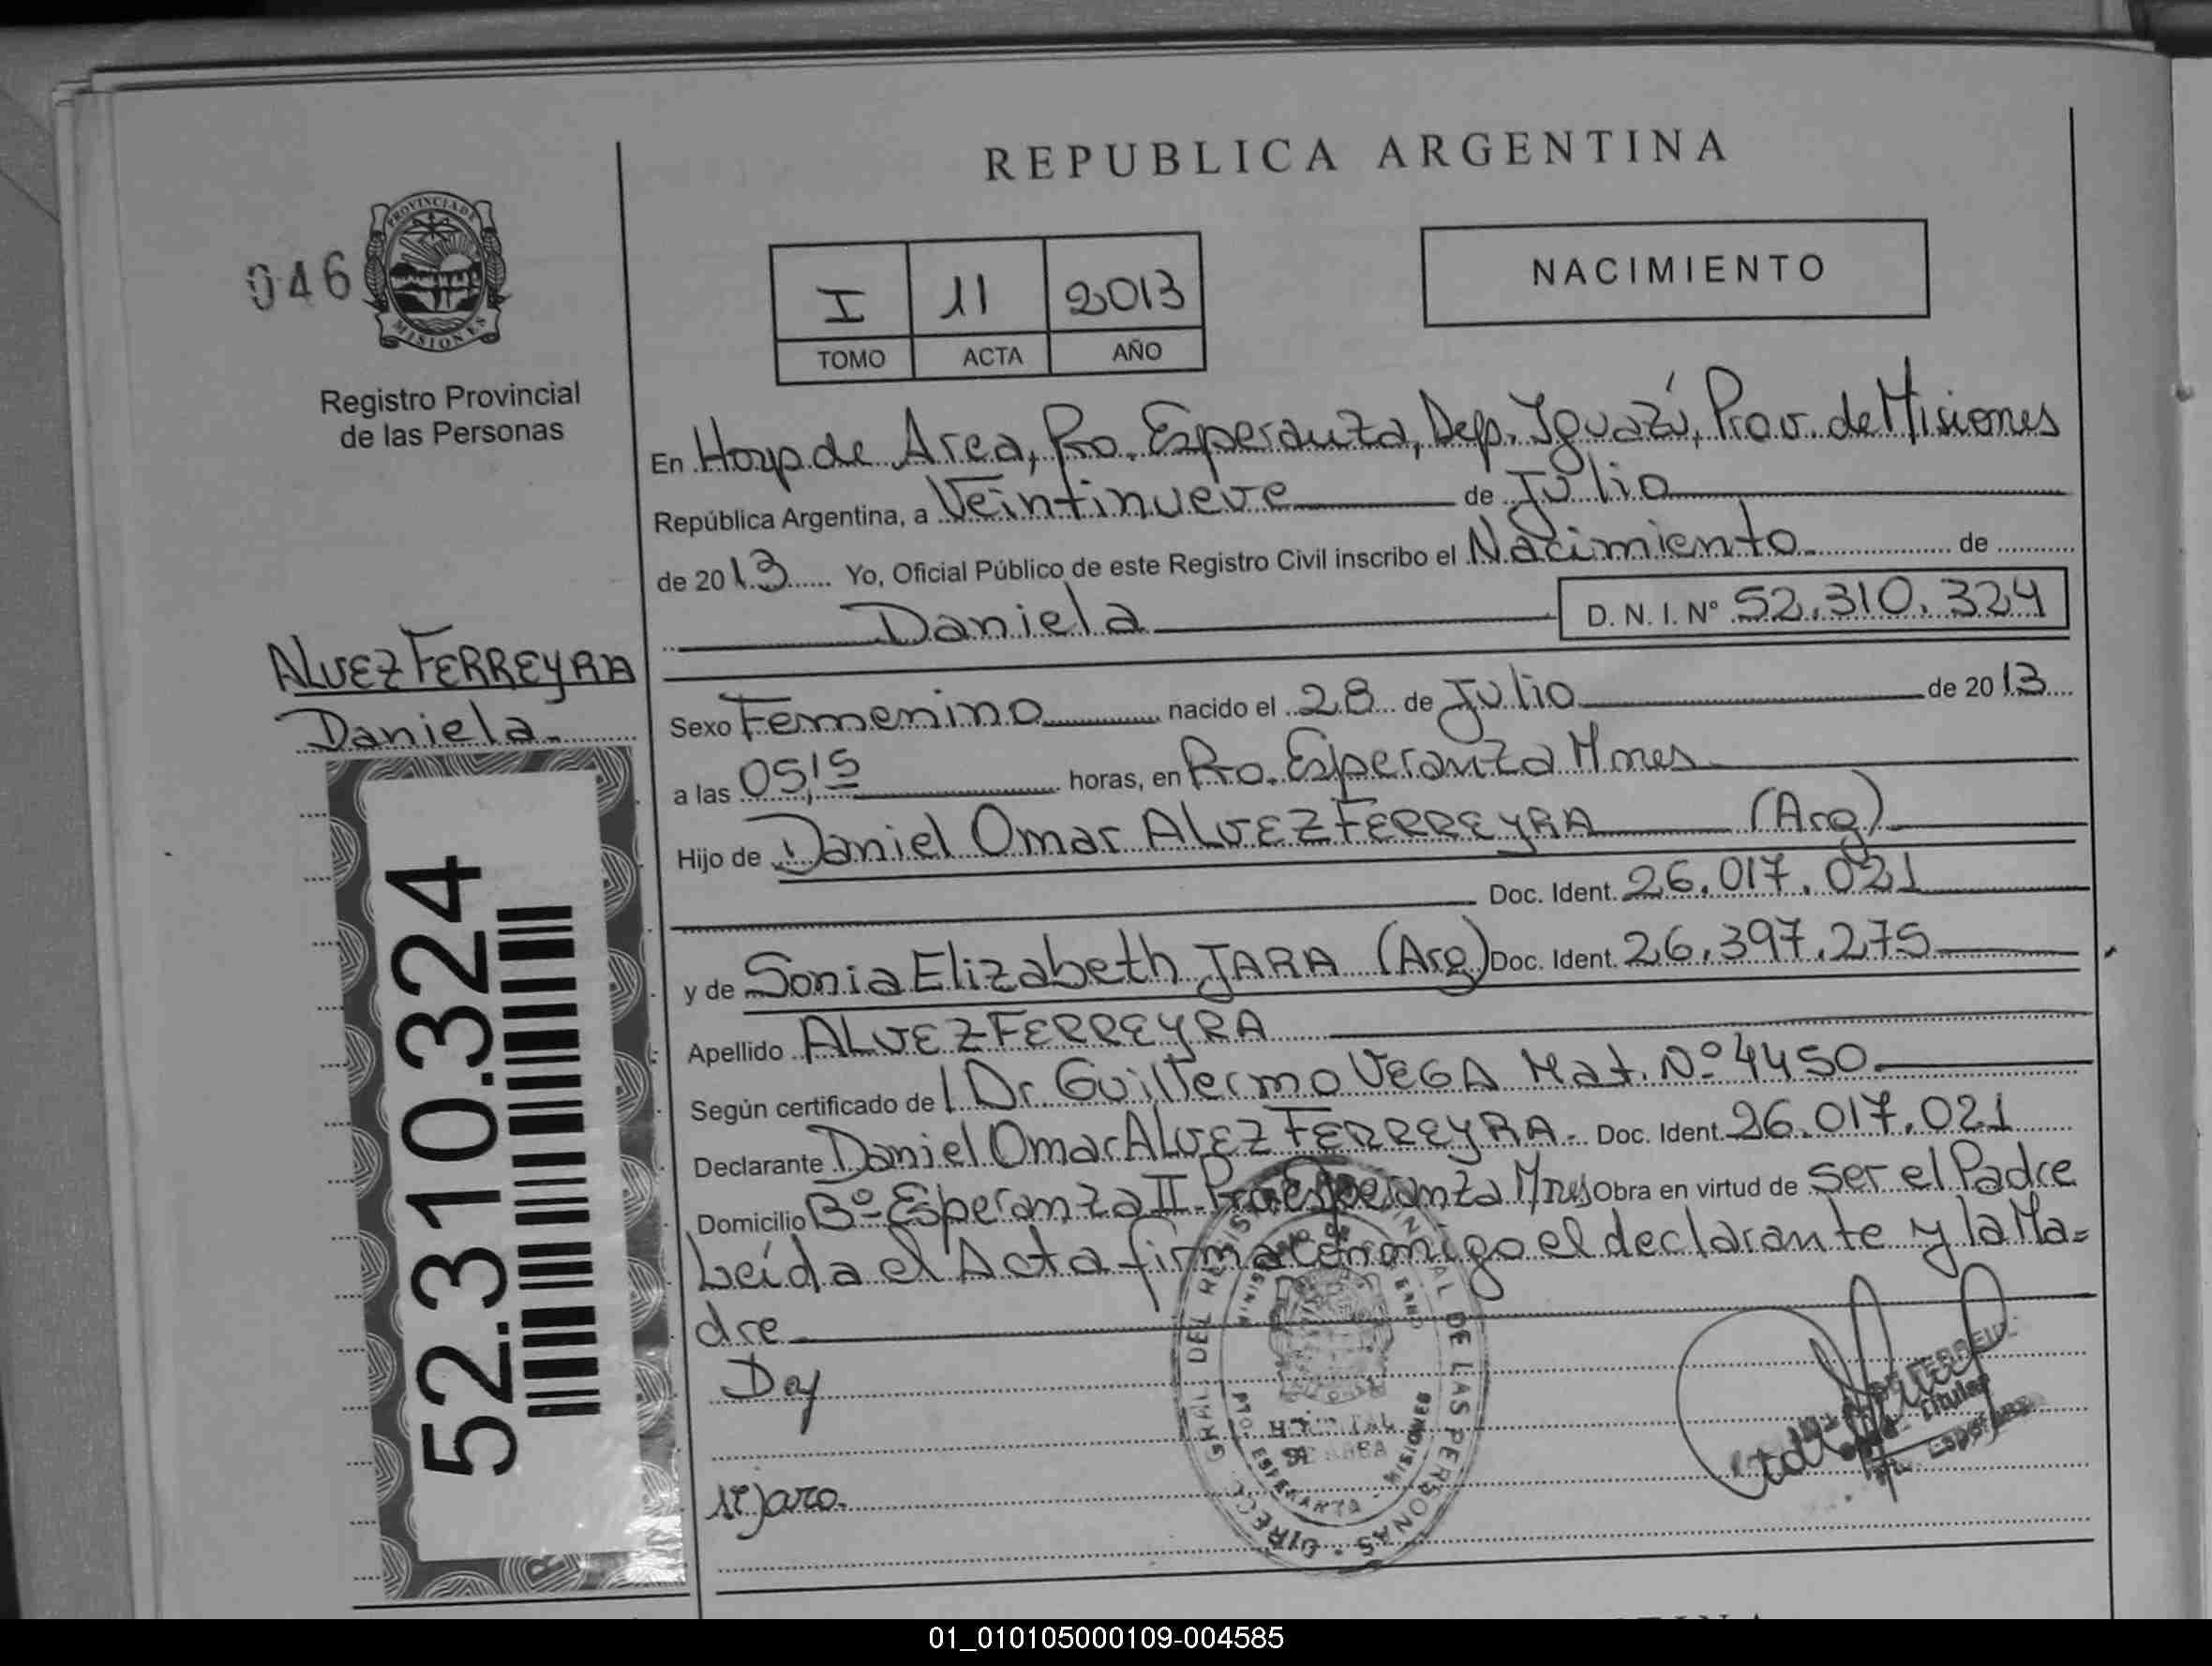 REPUBLICA ARGENTINA
046
PROVINCIA DE
MISIONES
Registro Provincial
de las Personas
I 11 2013
TOMO ACTA AÑO
NACIMIENTO
En Hosp. de Area, Pto. Esperanza, Dep. Iguazú, Prov. de Misiones
República Argentina, a Veintinueve de Julio
de 2013 Yo, Oficial Público de este Registro Civil inscribo el Nacimiento de
Daniela D. N. I. N° 52.310.324
ALVEZ FERREYRA
Daniela
52.310.324
Sexo Femenino nacido el 28 de Julio de 2013
a las 05,15 horas, en Pto. Esperanza Mnes
Hijo de Daniel Omar ALVEZ FERREYRA (Arg)
Doc. Ident. 26.017.021
y de Sonia Elizabeth JARA (Arg) Doc. Ident. 26.397.275
Apellido ALVEZ FERREYRA
Según certificado del Dr. Guillermo VEGA Mat. Nº 4450
Declarante Daniel Omar ALVEZ FERREYRA. Doc. Ident. 26.017.021
Domicilio Bº Esperanza II Pto Esperanza Mnes Obra en virtud de ser el Padre
Leída el Acta firma conmigo el declarante y la Ma=
dre
DIREC. GRAL. DEL REGISTRO PROVINCIAL DE LAS PERSONAS
HOSPITAL
DE AREA
PTO. ESPERANZA - MISIONES
Titular
01_010105000109-004585